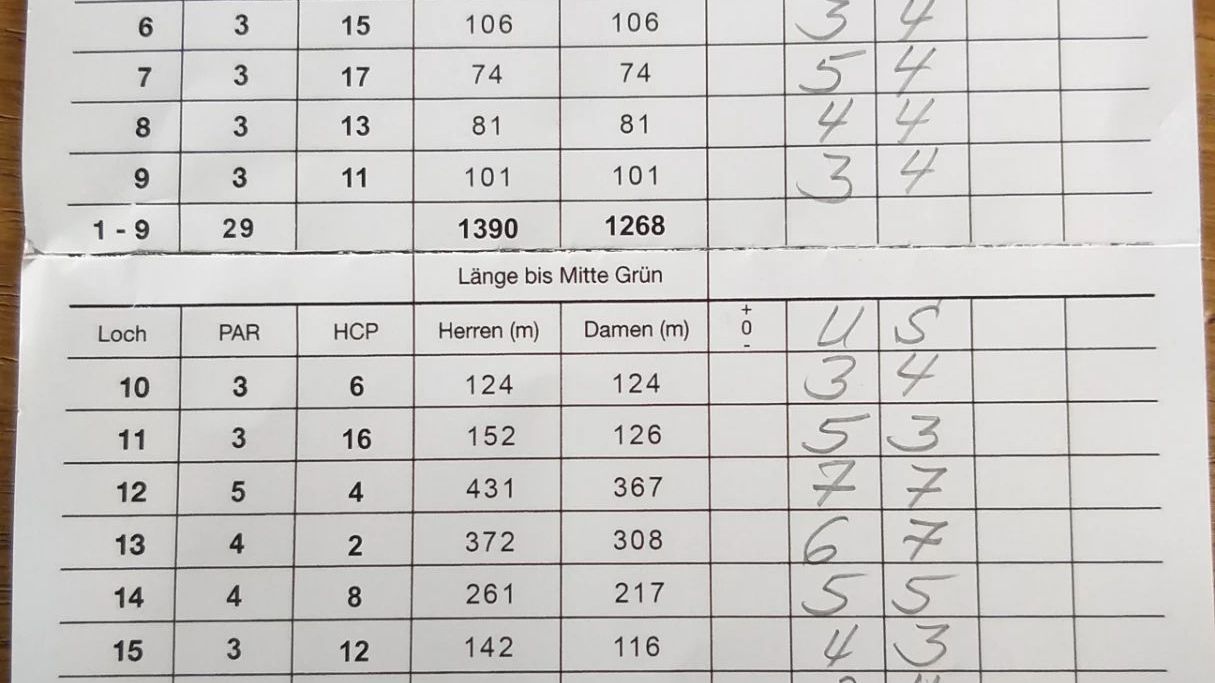 6 3 15 106 106 3 4
7 3 17 74 74 5 4
8 3 13 81 81 4 4
9 3 11 101 101 3 4
1 - 9 29 1390 1268
Länge bis Mitte Grün
Loch PAR HCP Herren (m) Damen (m) + 0 - U S
10 3 6 124 124 3 4
11 3 16 152 126 5 3
12 5 4 431 367 7 7
13 4 2 372 308 6 7
14 4 8 261 217 5 5
15 3 12 142 116 4 3